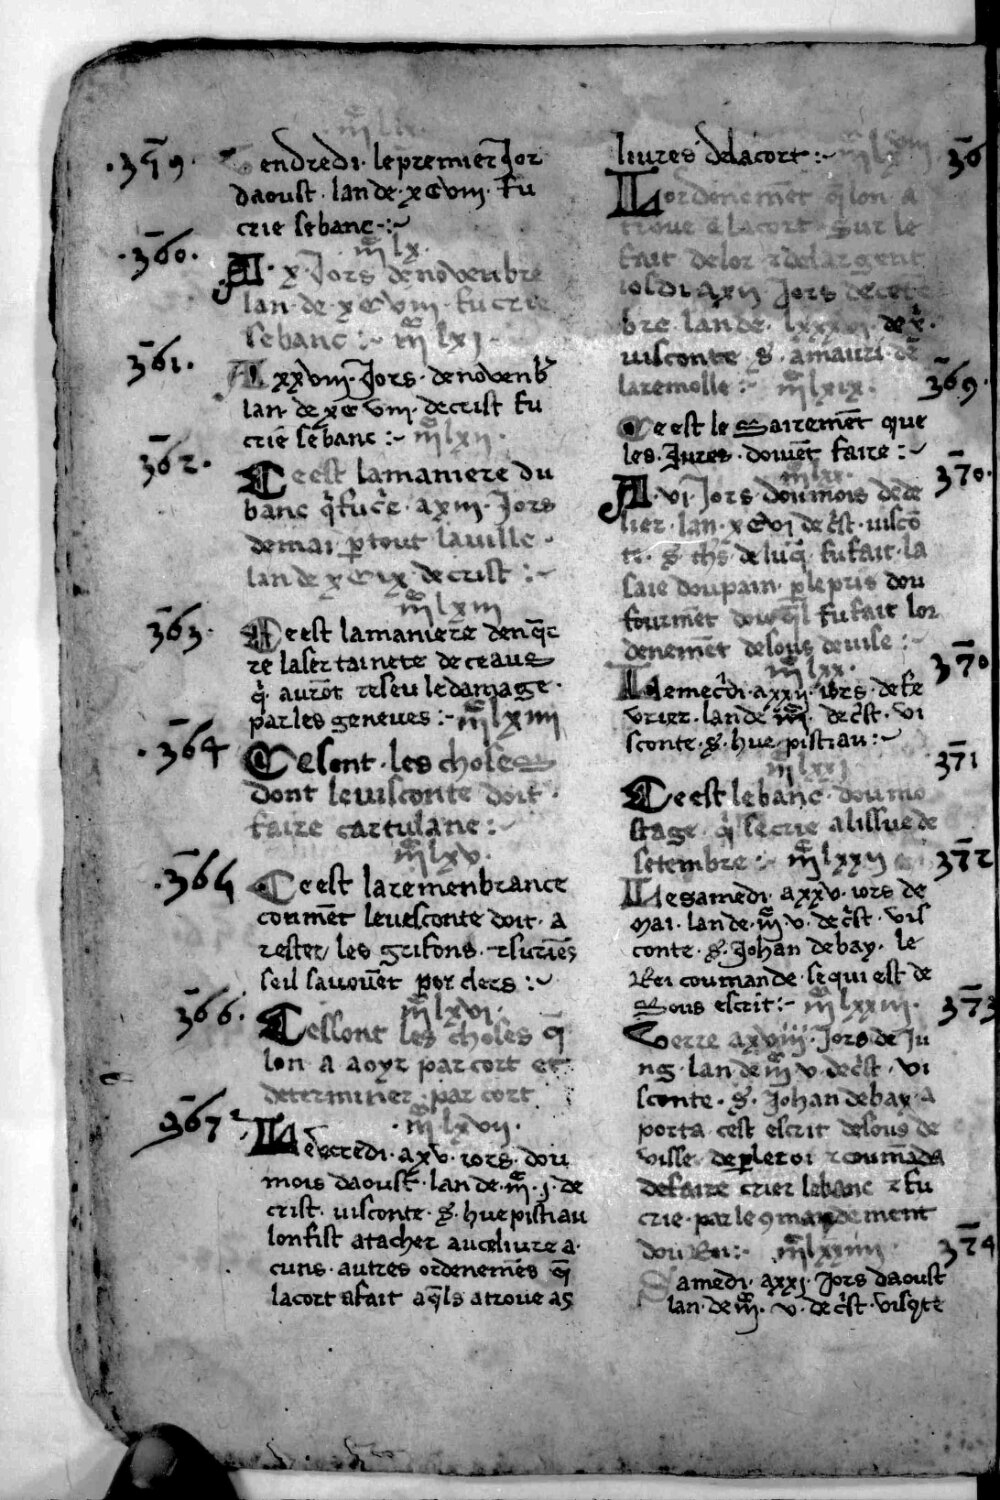 .359.
Vendredi. le premier Jor
daoust. lan de. xcviii. fu
crie se banc :~
.360.
iiiͨ lx.
A. x. Jors denovenbre
lan. de. xcviii. fu crie
se banc :~ iiiͨ lxi.
361.
A xxviii. Jors. denovenb̃
lan. de xcviii. de crist fu
crie se banc :~ iiiͨ lxii.
362.
Ce est la maniere du
banc q̃ fu c̃e. a xiii. Jors
de mai. p̱tout la ville.
lan de xcix. de crist :~
iiiͨ lxiii
363.
Ce est la maniere denq̃e
re la sertainete de ceaus
q̃. auront reseu le damage.
par les geneves :~ iiiͨ lxiiii
.364
Ce sont. les choses
dont le visconte doit.
faire cartulane :~
iiiͨ lxv.
.365
Ce est la remenbrance
coumẽt le vesconte doit. a
rester/ les grifons. ⁊ suriens
seil savouẽt por clers :~
366.
iiiͨ lxvi.
Ces sont les choses q̃
lon a aoyr par cort et
determiner. par cort
.iiiͨ lxvii.
367
Mercredi. a xv. iors. dou
mois daoust. lan de. m̃. iiiͨ. j. de
crist. visconte. s̃. hue pistiau
lon fist atacher au celivre a.
cuns. autres ordenemẽs q̃
la cort a fait aq̃ls a trove as
livres de la cort :~ iiiͨ lxviii
36
Lordenemẽt q̃ lon a
trove e la cort sur le
fait de lor ⁊ de largent
iosdi a xii. Jors de cete
bre. lan de. lxxxvi. de x̃.
visconte. s̃. amauri. de
la remolle :~ iiiͨ lxix.
369.
Ce est le sairemẽt que
les. Jures. doivẽt faire :~
iiiͨ lxx.
370.
A. vi. Jors. dou mois de de
lier. lan. xcvi de c̃st. viscõ
te. s̃. ths̃. de luq̃. fu fait. la
saie dou pain. p̱ le pris dou
fourmẽt douq̃l fu fait lor
denemẽt desous devise :~
iiiͨ lxx.
370
Le mec̃di. a xxii. iors. de fe
vrier. lan de m̃. iiiͨ. de c̃st. vi
sconte. s̃. hue pistiau :~
iiiͨ lxxi
371
Ce est le banc. dou mo
stage. q̃. se crie a lissue de
setembre :~ iiiͨ lxxii
372
Le samedi. a xxv. iors de
mai. lan de. m̃ iiiͨ. v. de c̃st. vis
conte. s̃. Johan de bay. le
Rei coumande. se qui est de
sous escrit :~ iiiͨ lxxiii.
373
Verre a xviii. Jors de Ju
ng. lan de m̃ iiiͨ v. de c̃st. vi
sconte. s̃. Johan de bay. a
porta cest escrit desous de
ville. de p̱ le roi ⁊ coumãda
de faire crier le banc ⁊ fu
crie. par le ꝯmandement
dou Rei :~ iiiͨ lxxiiii.
374
Samedi. a xxi. Jors daoust
lan. de m̃ iiiͨ. v. de c̃st. visꝯte